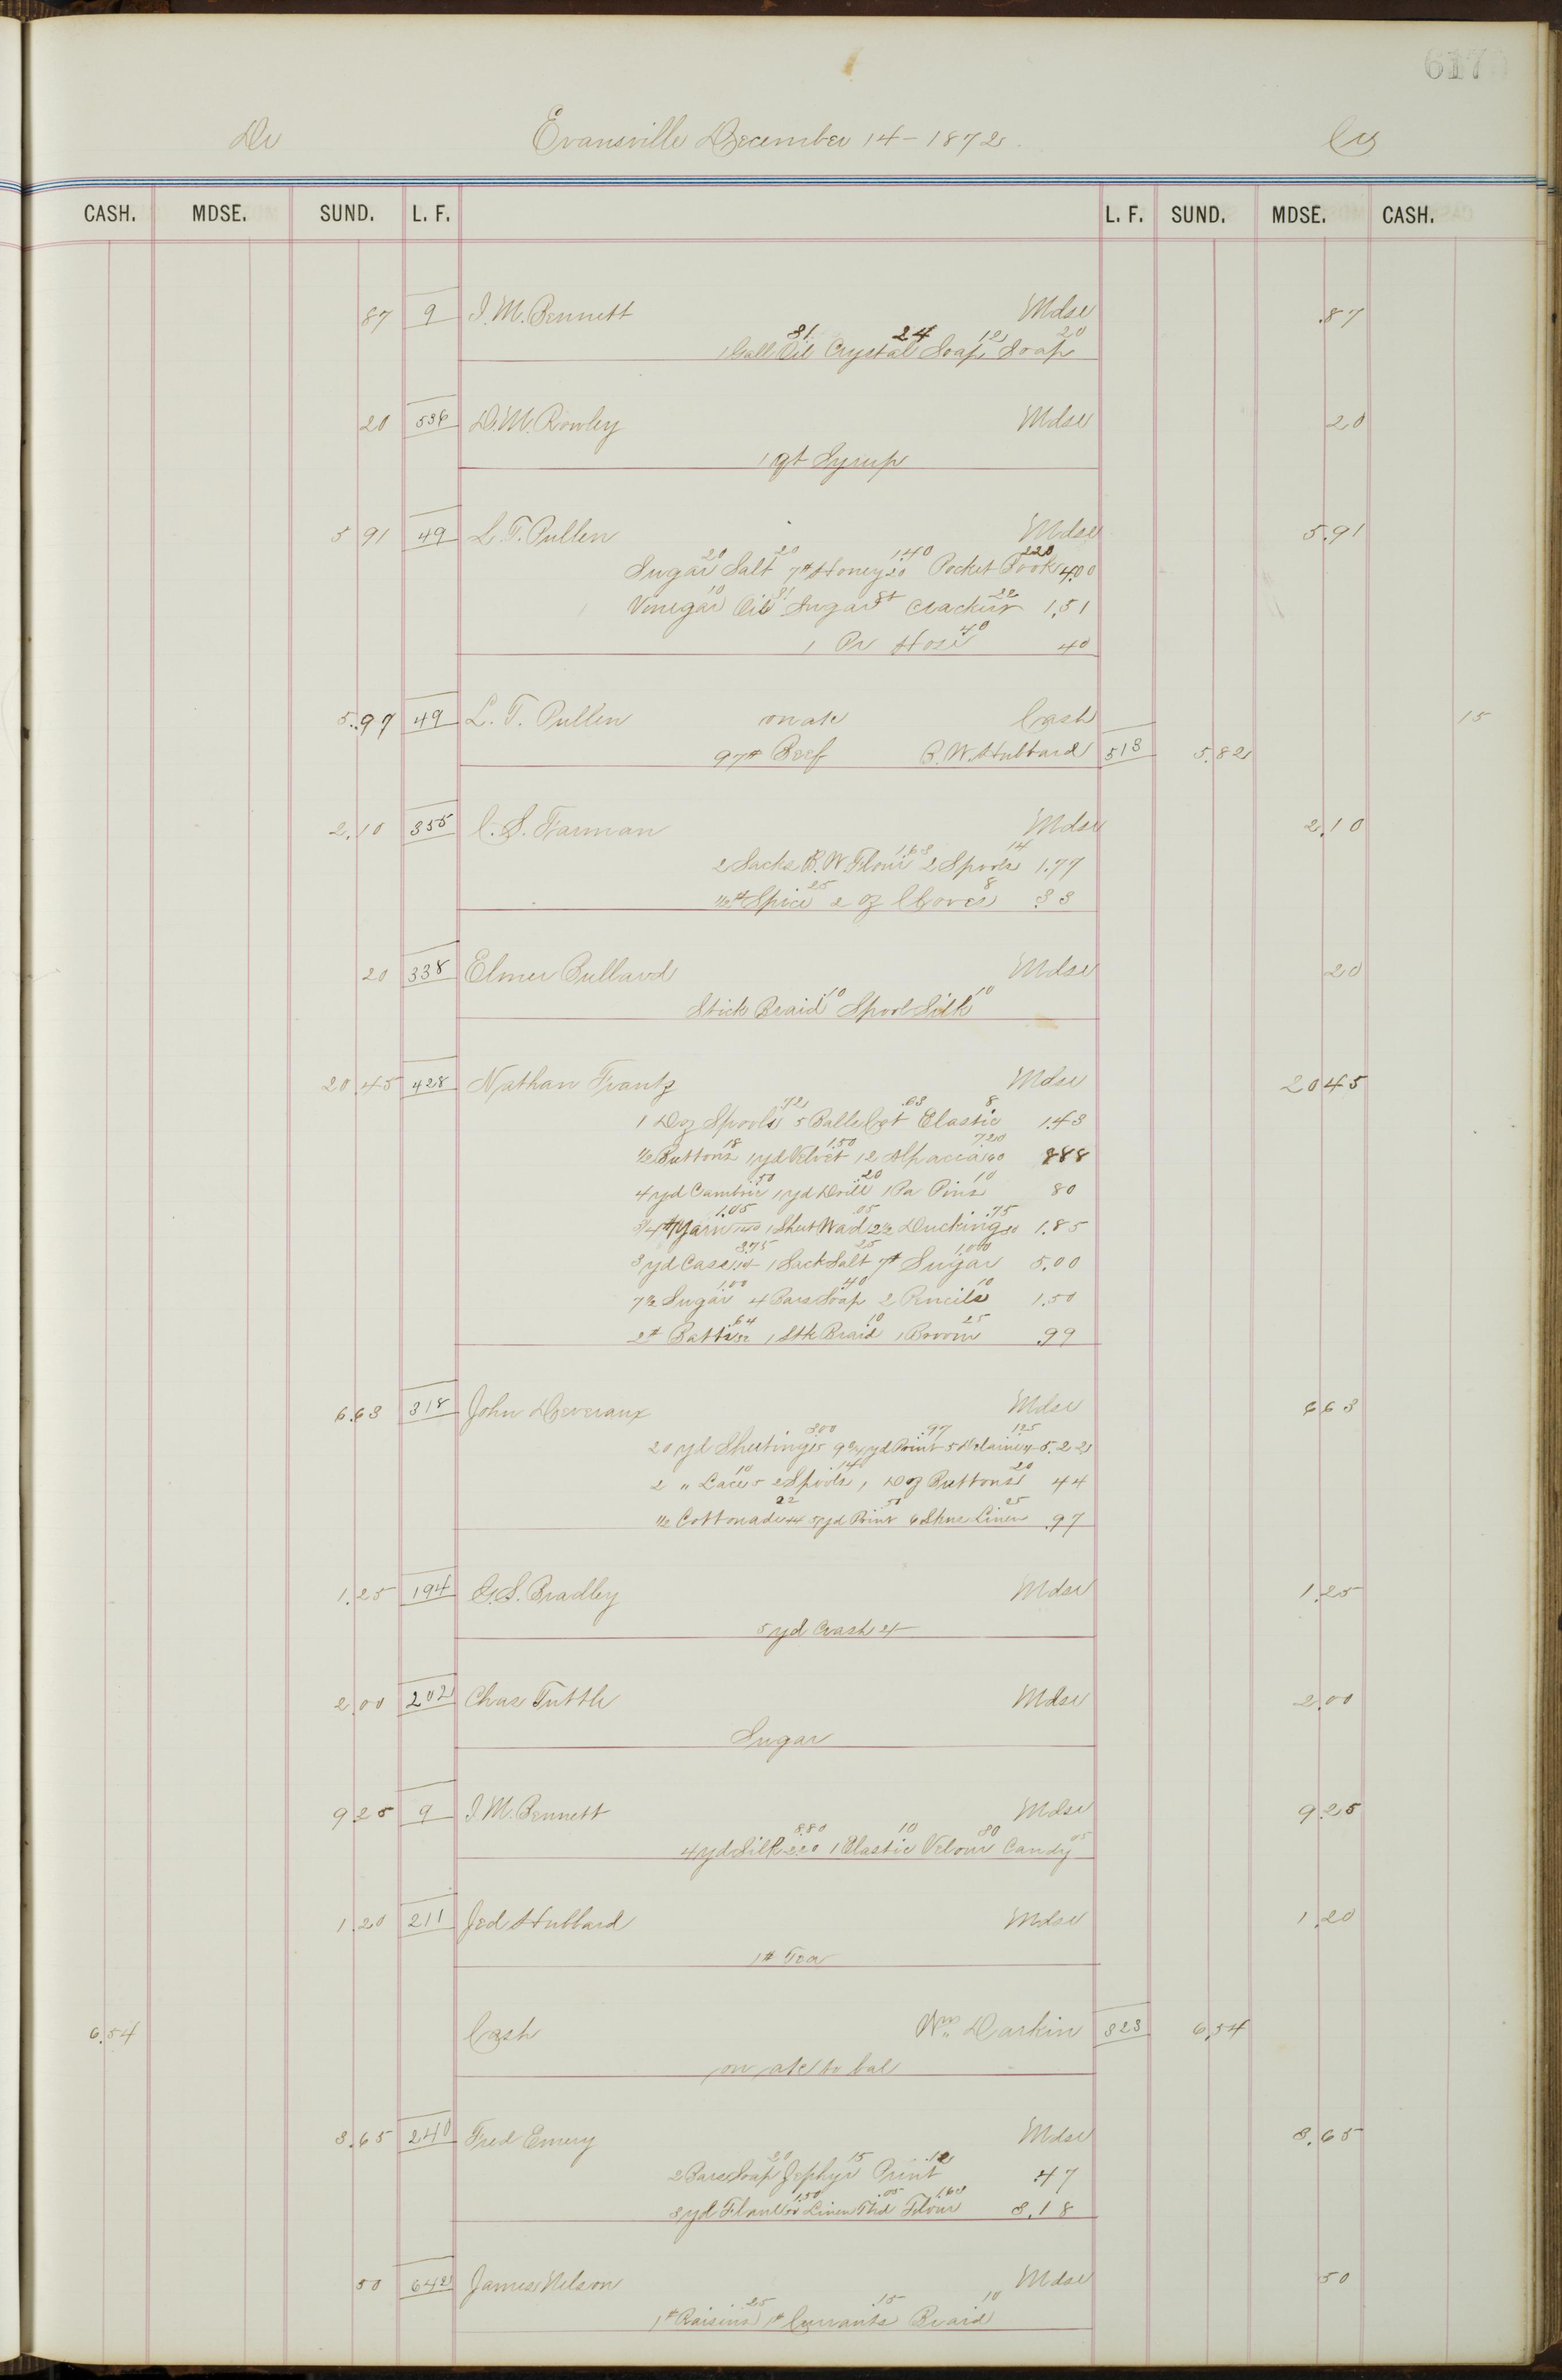 617
Dr Evansville December 14 - 1872. Cr
CASH. MDSE. SUND. L. F. L. F. SUND. MDSE. CASH.
87 9 I. M. Bennett Mdse .87
31 24 12 20
1 Gall Oil Crystal Soap Soap
20 536 D. M. Rowley Mdse 20
1 qt Syrup
5 91 49 L. T. Pullen Mdse 5.91
20 20 1.40 220
Sugar Salt 7# Honey 20 Pocket Book 4.00
10 31 88 22
Vinegar Oil Sugar Cracker 1.51
40
1 Pr Hose 40
5.97 49 L. T. Pullen on a/c Cash 15
97# Beef B. W. Hubbard 513 5.82
2.10 355 C. S. Farman Mdse 2.10
1.63 14
2 Sacks B. W Flour 2 Spools 1.77
25 8
1/2# Spice 2 oz Cloves 33
20 338 Elmer Bullard Mdse 20
10 10
Stick Braid Spool Silk
20.45 428 Nathan Frantz Mdse 20 45
.72 .63 8
1 Doz Spools 5 Balls Cot Elastic 1.43
18 1.50 7.20
1/2 Buttons 1 yd Velvet 12 Alpacca 60 888
.50 .20 10
4 yd Cambric 1 yd Drill 1 Pa Pins 80
1.05 .05 .75
3/4# Yarn 140 1 Sheet Wad 2 1/2 Ducking 30 1.85
3.75 25 1.00
3 yd Cass 1 Sack Salt 7# Sugar 5.00
1.00 40 10
7 1/2 Sugar 4 Bars Soap 2 Pencils 1.50
64 10 25
2# Batts 32 1 Stk Braid 1 Broom .99
6.63 318 John Deveraux Mdse 6 63
3.00 .97 1.25
20 yd Sheeting 15 9 3/4 yd Print 5 Delaine 5.22
10 14 20
2 " Lace 5 2 Spools 1 Doz Buttons 44
22 50 25
1/2 Cottonade 44 5 yd Print 6 Shoe Linen .97
1.25 194 G. S. Bradley Mdse 1.25
5 yd Crash 4
2.00 202 Chas Tuttle Mdse 2.00
Sugar
9 25 9 I M. Bennett Mdse 9 25
8.80 10 30 05
4 yd Silk 2.20 1 Elastic Velour Candy
1.20 211 Jed Hubbard Mdse 1.20
1# Tea
6.54 Cash Wm Darkin 323 6.54
on a/c to bal
3.65 240 Fred Emery Mdse 3.65
20 15 .12
2 Bars Soap Zephyr Print .47
1.50 .05 1.63
3 yd Flanl 50 Linen Thd Flour 3.18
50 642 James Nelson Mdse 50
25 15 10
1# Raisins 1# Currants Braid